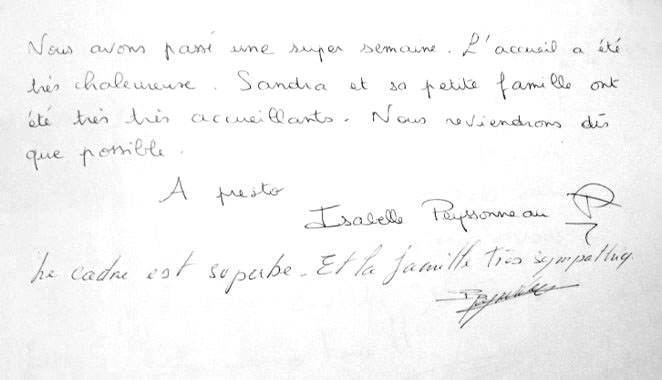 Nous avons passé une super semaine. L'accueil a été
très chaleureuse. Sandra et sa petite famille ont
été très très accueillants. Nous reviendrons dès
que possible.
A presto
Isabelle Peyssonneau
Le cadre est superbe. Et la famille très sympathiq.